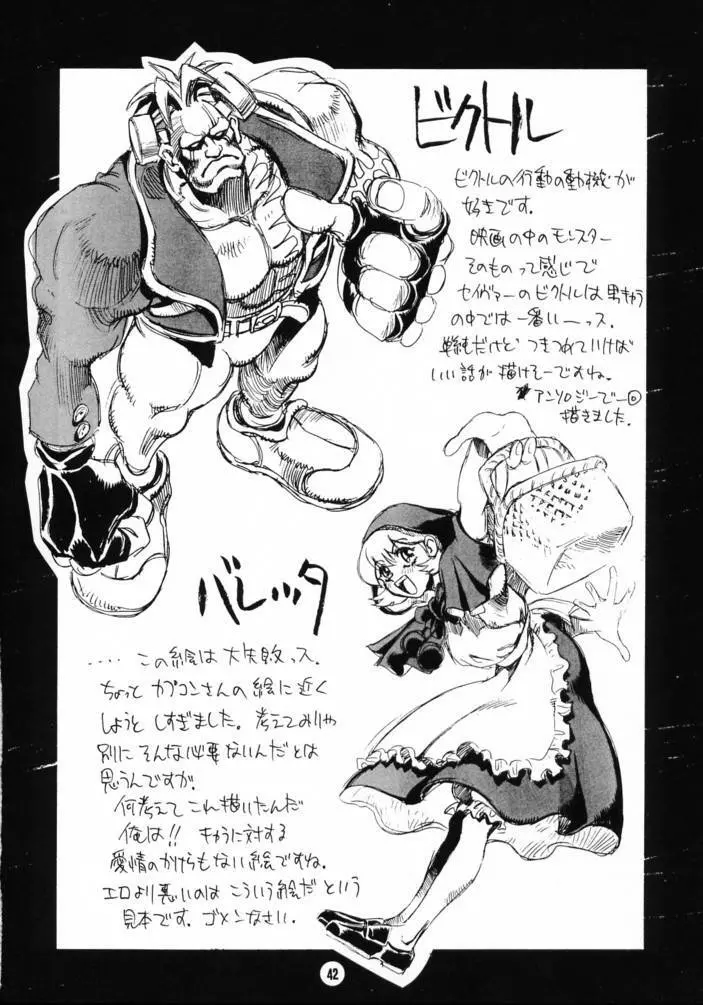 ビクトル
ビクトルの行動の動機が
好きです。
映画の中のモンスター
そのものって感じで
セイヴァーのビクトルは男キャラ
の中では一番いーっス。
単純だけど、つきつめていけば
いい話が描けそーですね。
★アンソロジーでー回
描きました。
バレッタ
.... この絵は大失敗っス.
ちょっと カプコンさんの絵に近く
しようと しすぎました。考えてみりゃ
別に そんな必要ないんだとは
思うんですが.
何考えて これ描いたんだ
俺は!! キャラに対する
愛情のかけらもない絵ですね.
エロより悪いのは こういう絵だ という
見本です. ゴメンなさい.
42